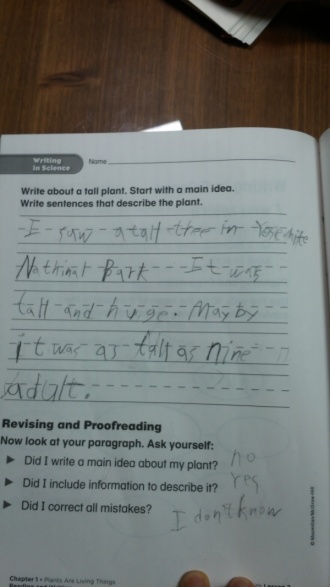 Writing
in Science
Name
Write about a tall plant. Start with a main idea.
Write sentences that describe the plant.
I saw a tall tree in Yosemite
Nathinal Park It was
tall and huge. Mayby
it was as tall as nine
adult.
Revising and Proofreading
Now look at your paragraph. Ask yourself:
▶ Did I write a main idea about my plant? no
▶ Did I include information to describe it? Yes
▶ Did I correct all mistakes? I don't know
© Macmillan/McGraw-Hill
Chapter 1 • Plants Are Living Things